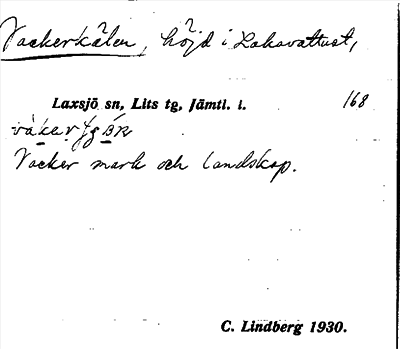 Vackerkälen, höjd i Laksavattnet,
Laxsjö sn, Lits tg, Jämtl. l. 168
Vacker mark och landskap.
C. Lindberg 1930.